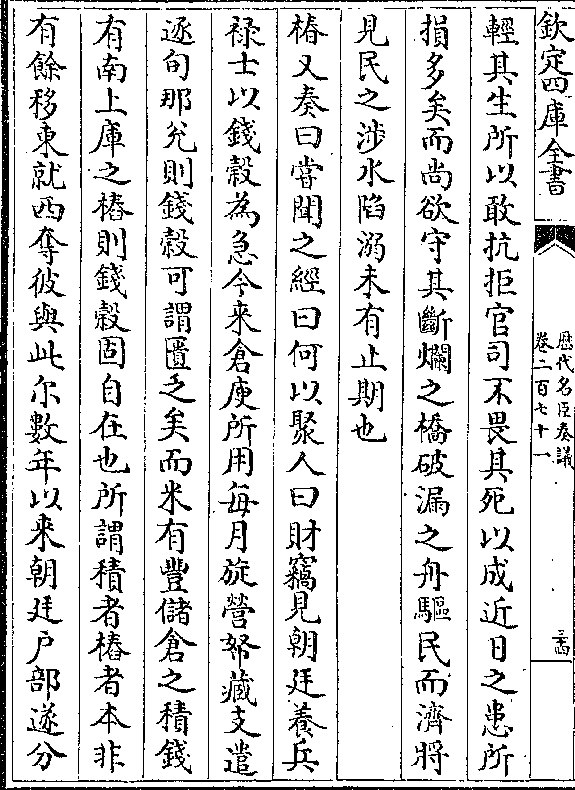 欽定四庫全書
歴代名臣奏議
卷二百七十一
輕其生所以敢抗拒官司不畏其死以成近日之患所
損多矣而尚欲守其斷爛之橋破漏之舟驅民而濟將
見民之渉水陷溺未有止期也
椿又奏曰嘗聞之經曰何以聚人曰財竊見朝廷養兵
禄士以錢穀為急今来倉庾所用每月旋營帑藏支遣
逐旬那兊則錢穀可謂匱乏矣而米有豐儲倉之積錢
有南上庫之樁則錢穀固自在也所謂積者樁者本非
有餘移東就西奪彼與此尔數年以来朝廷户部遂分